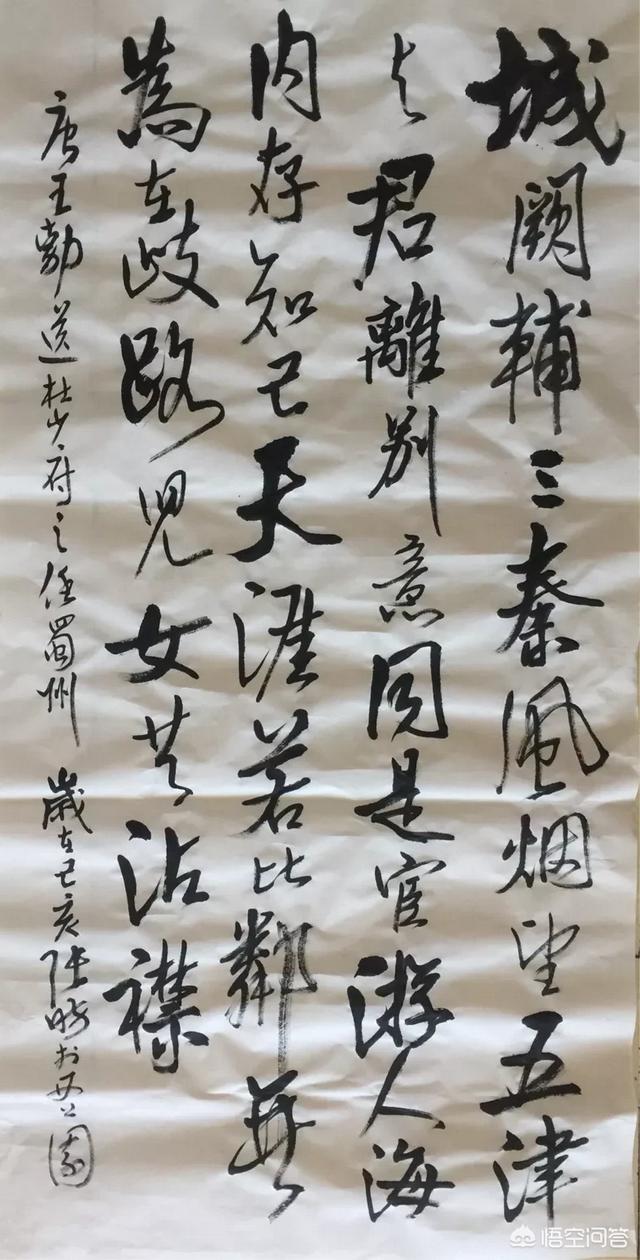 城闕輔三秦風烟望五津
与君離别意同是宦游人海
内存知己天涯若比鄰無
為在歧路兒女共沾襟
唐王勃送杜少府之任蜀州 歲在己亥 園
悟空问答